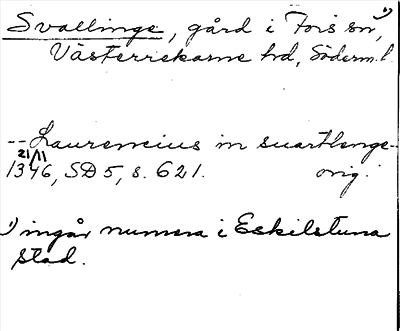 Svallinge, gård i Fors sn, 1)
Västerrekarne hd, Söderm.l.
-- Laurencius in suartlenge --
21/11
1346, SD 5, s. 621. orig.
1) ingår numera i Eskilstuna
stad.